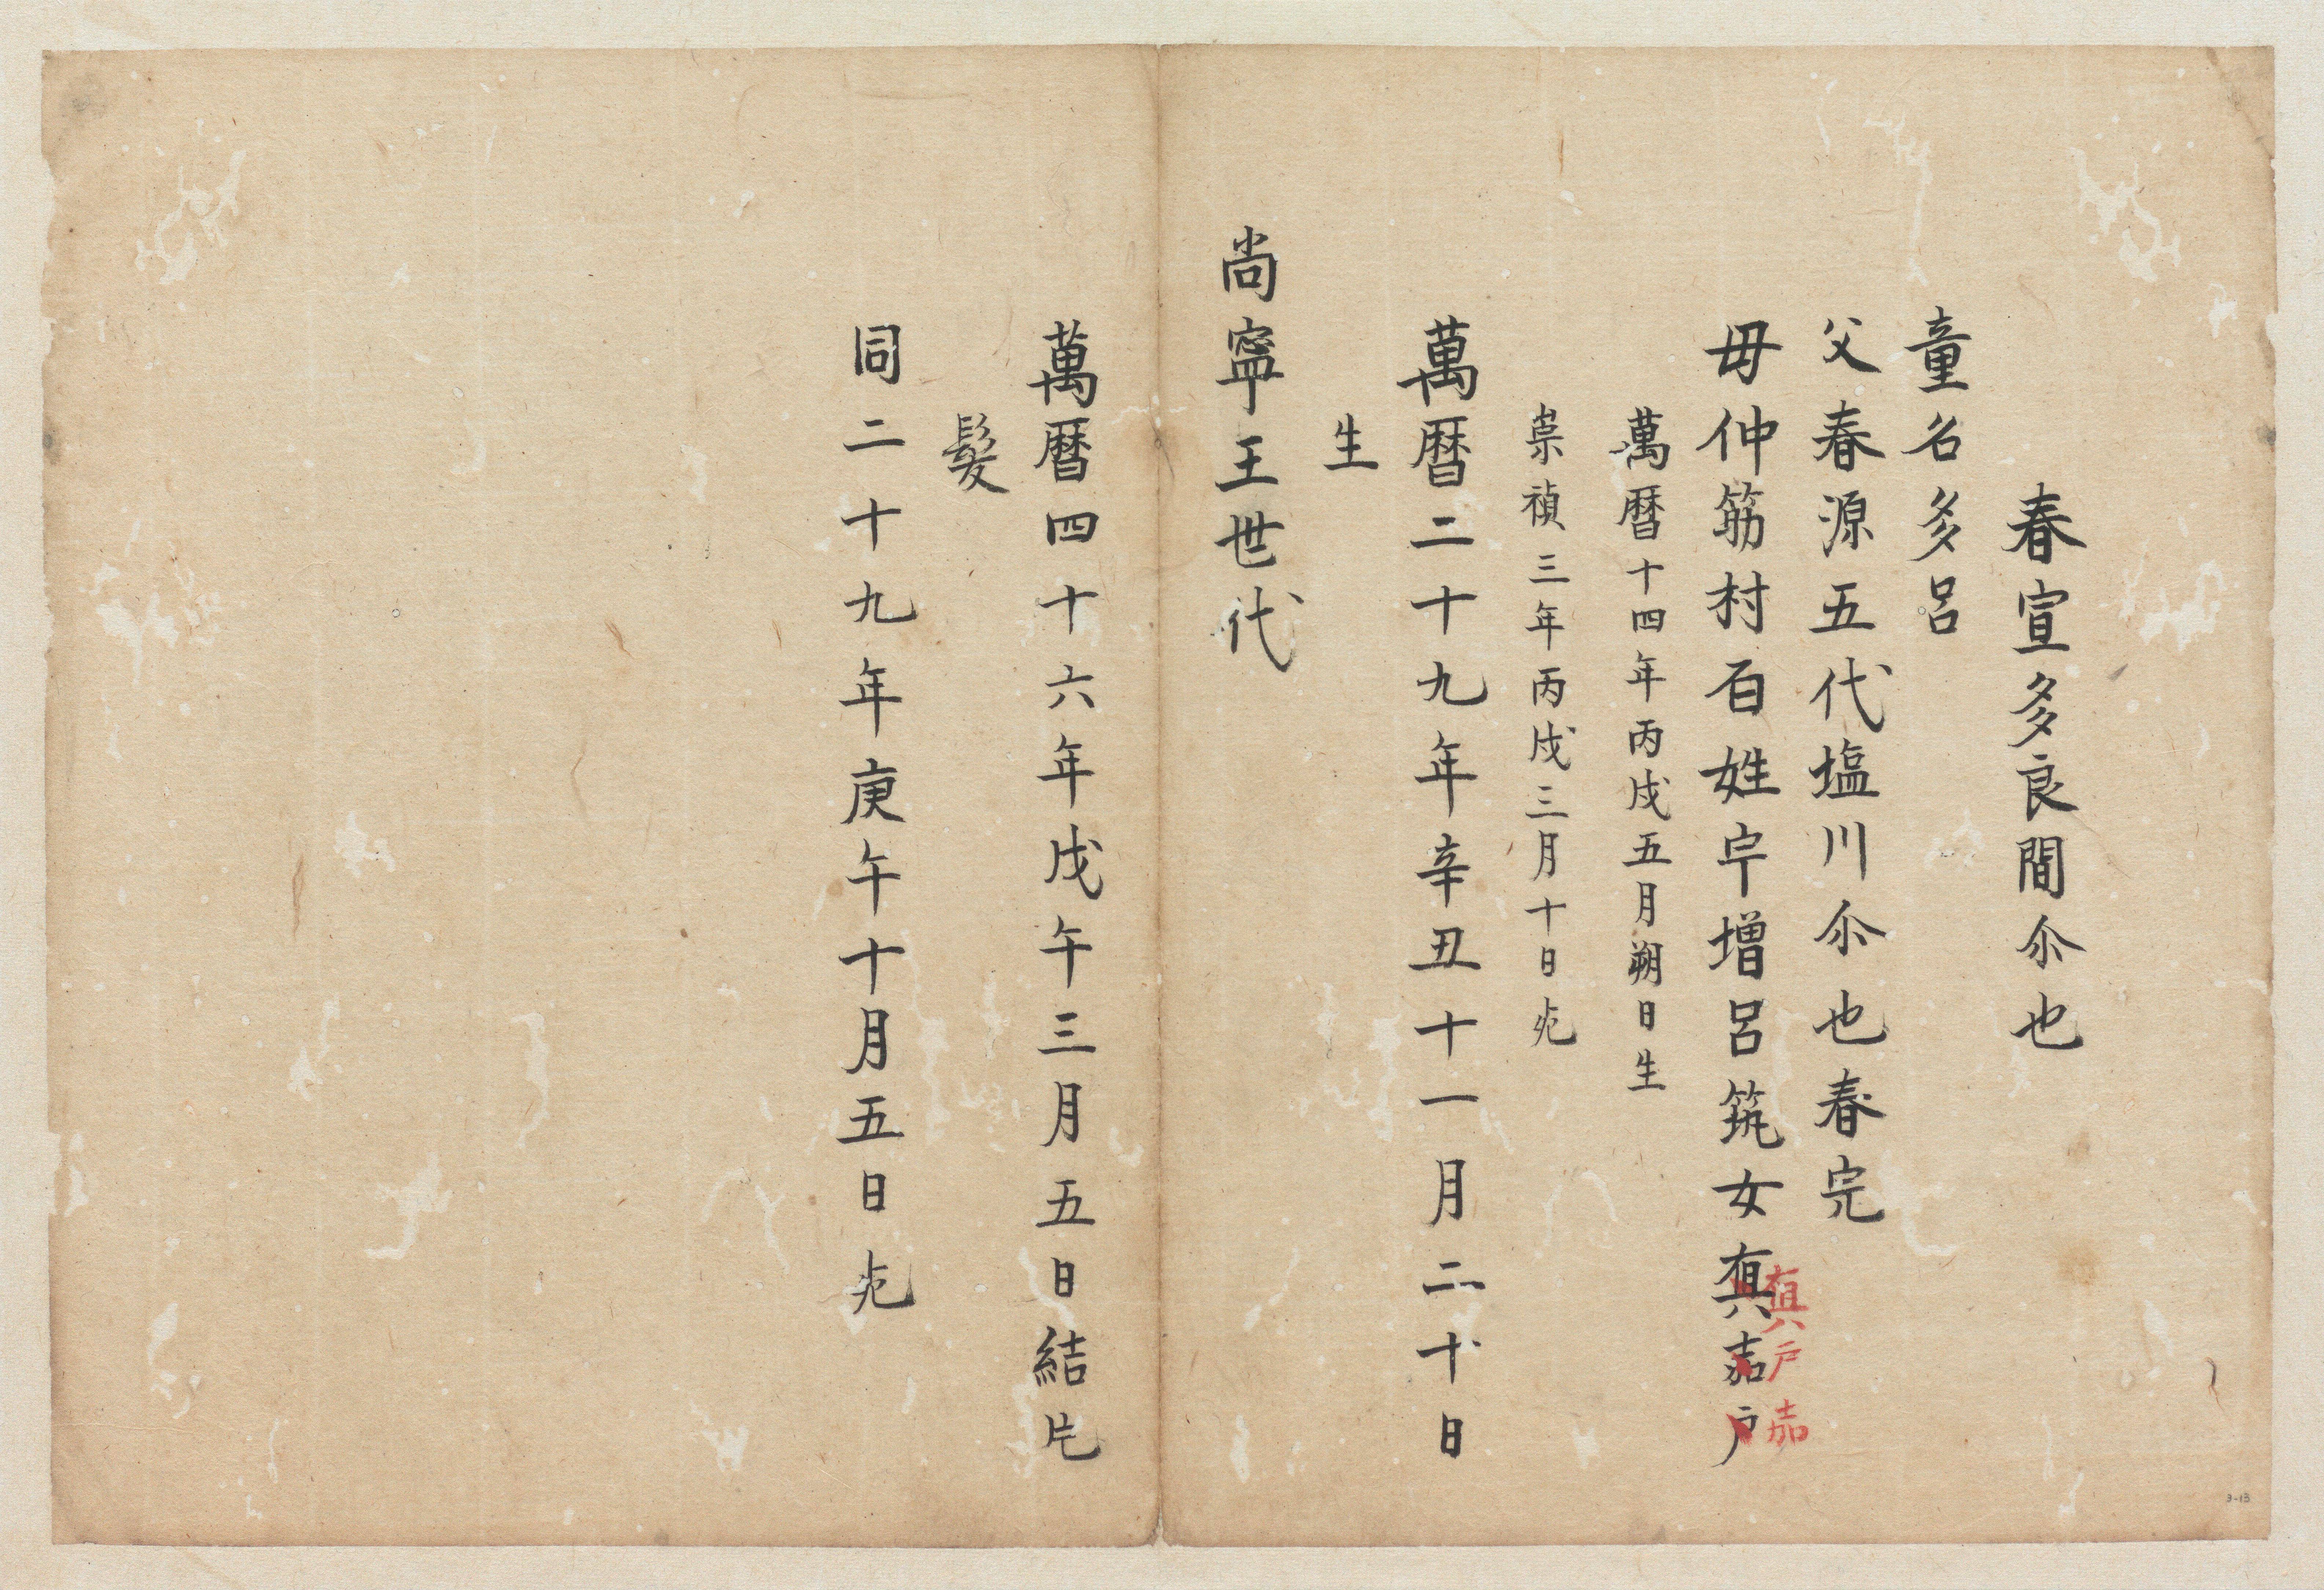 春宣多良間尒也
童名多呂
父春源五代塩川尒也春完
母仲筋村百姓宇増呂筑女真嘉戸
真戸嘉
萬暦十四年丙戌五月朔日生
崇禎三年丙戌三月十日死
萬暦二十九年辛丑十一月二十日
生
尚寧王世代
萬暦四十六年戊午三月五日結片
髮
同二十九年庚午十月五日死
3-13